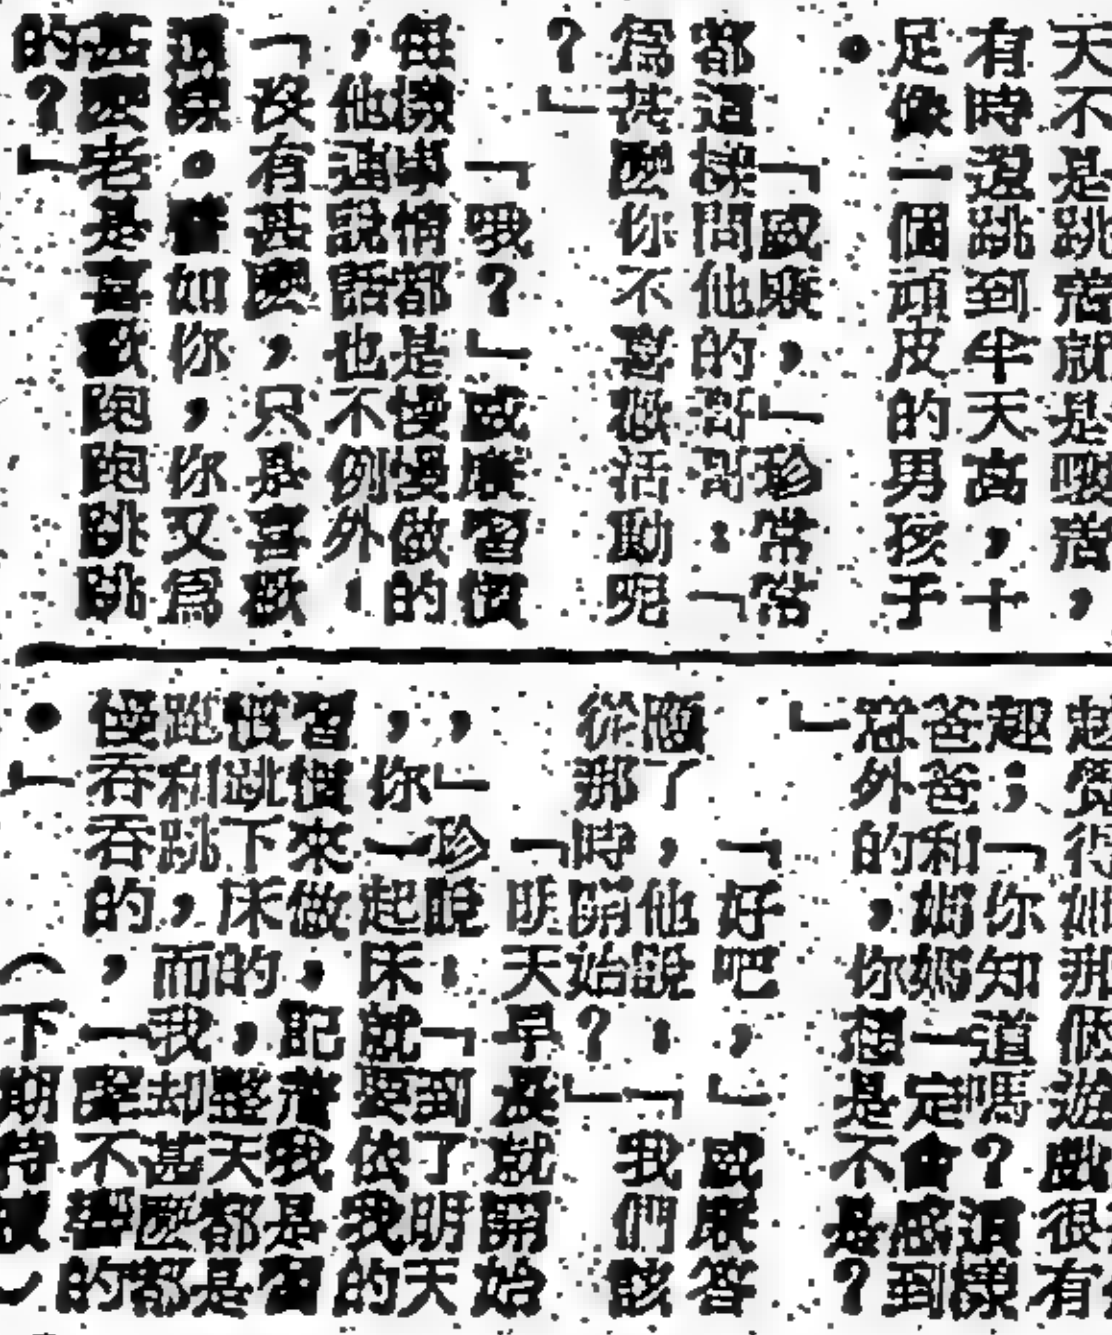 天不是跳着就是嚷着，
有時還跳到半天高，十
足像一個頑皮的男孩子
。
「威廉，」珍常常
都這樣問他的哥哥：「
為甚麼你不喜歡活動呢
？」
「哦？」威廉習慣
每樣事情都是慢慢做的
，他連說話也不例外，
「沒有甚麼，只是喜歡
如你，你又為
甚麼老是喜歡跑跑跳跳
的？」
趣；「你知道嗎？這樣
爸爸和媽媽一定會感到
意外的，你想是不是？
」
「好吧，」威廉答
應了，他說，「我們該
從那時開始？」
「明天早晨就開始
，」珍說，「到了明天
，你一起床就要依我的
習慣來做，記着我是習
慣跳下床的，整天都是
跑和跳，而我却甚麼都
慢吞吞的，一聲不響的
。」
（下期待續）